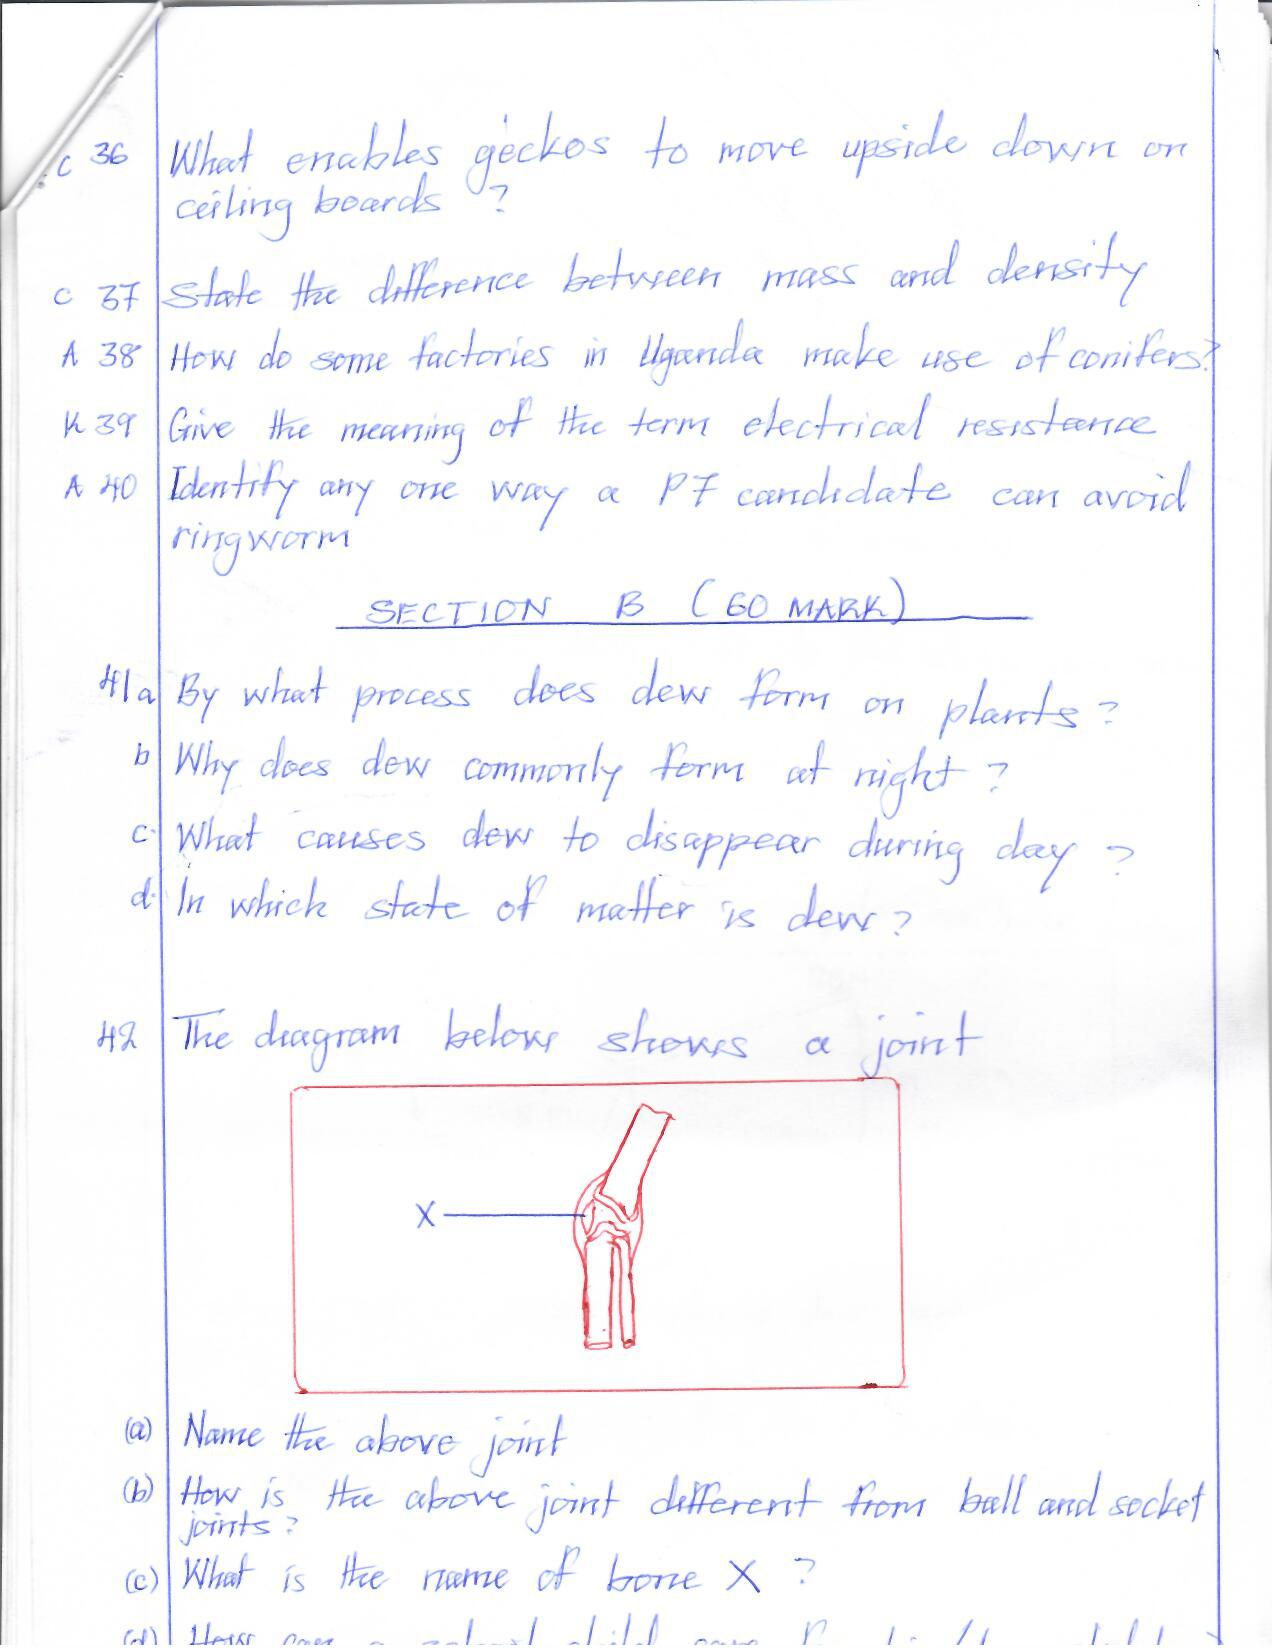 C 36 What enables geckos to move upside down on
ceiling boards ?
C 37 State the difference between mass and density
A 38 How do some factories in Uganda make use of conifers?
K 39 Give the meaning of the term electrical resistance
A 40 Identify any one way a P7 candidate can avoid
ringworm
SECTION B (60 MARK)
41a By what process does dew form on plants ?
b Why does dew commonly form at night ?
c. What causes dew to disappear during day ?
d. In which state of matter is dew ?
42 The diagram below shows a joint
X
(a) Name the above joint
(b) How is the above joint different from ball and socket
joints ?
(c) What is the name of bone X ?
(d) How can a school child